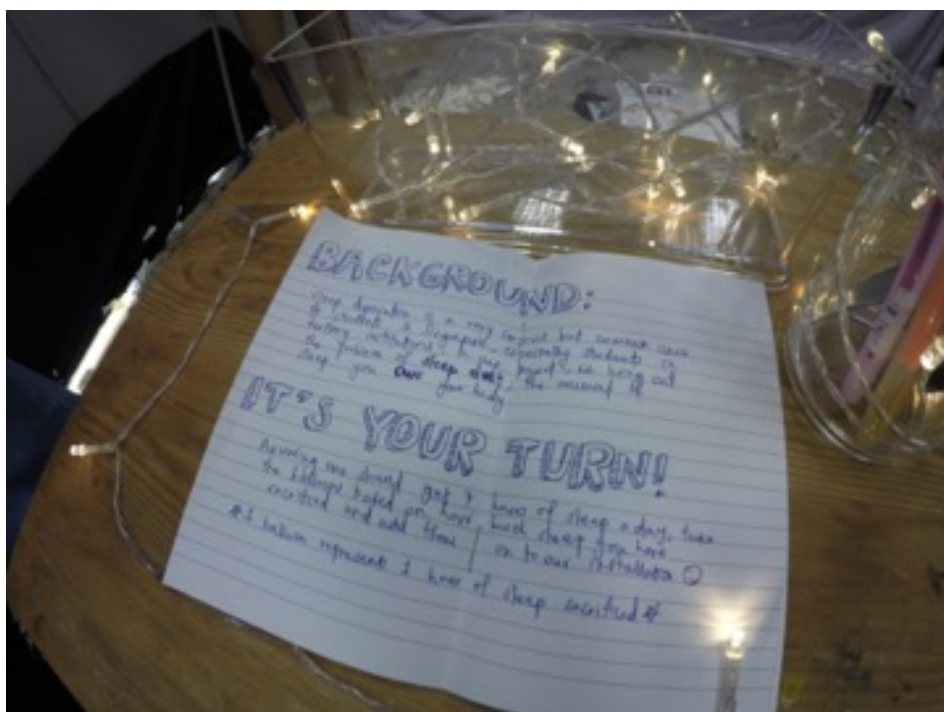 BACKGROUND:
Sleep deprivation is a very common but serious issue
of students in Singapore, especially students in
tertiary institutions. In our project, we bring out
the fusion of sleep debt, the amount of
sleep you owe your body.
IT'S YOUR TURN!
Assuming one should get 7 hours of sleep a day, tune
the balloons based on how much sleep you have
sacrificed and add them on to our installation
*1 balloon represents 1 hour of sleep sacrificed*